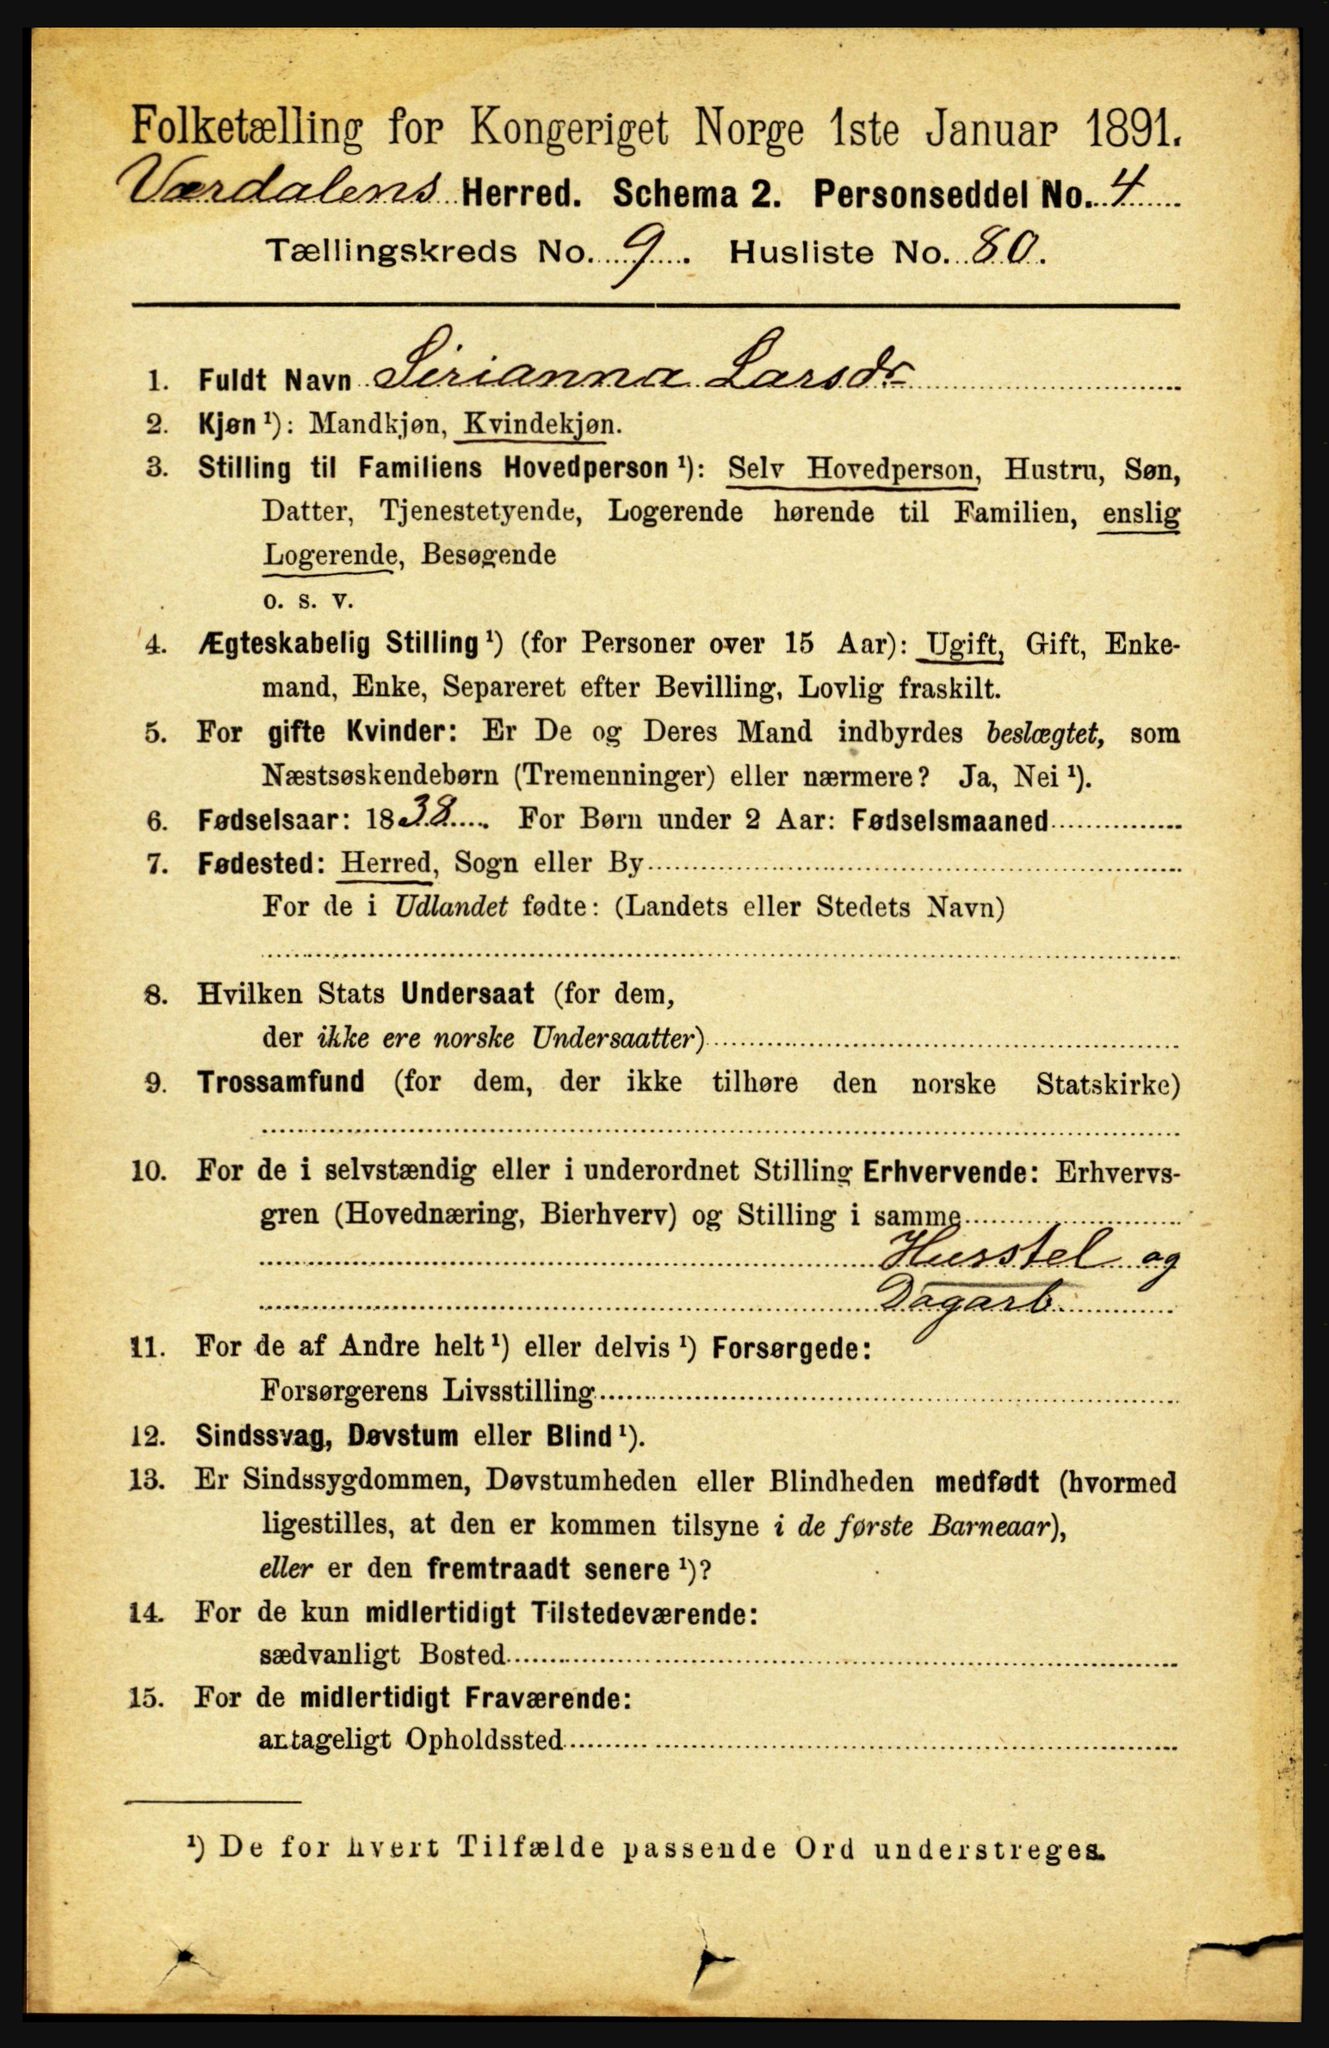 Folketælling for Kongeriget Norge 1ste Januar 1891.
Værdalens Herred. Schema 2. Personseddel No. 4
Tællingskreds No. 9. Husliste No. 80.
1. Fuldt Navn Sirianna Larsdr
2. Kjøn ¹): Mandkjøn, Kvindekjøn.
3. Stilling til Familiens Hovedperson ¹): Selv Hovedperson, Hustru, Søn,
Datter, Tjenestetyende, Logerende hørende til Familien, enslig
Logerende, Besøgende
o. s. v.
4. Ægteskabelig Stilling ¹) (for Personer over 15 Aar): Ugift, Gift, Enke-
mand, Enke, Separeret efter Bevilling, Lovlig fraskilt.
5. For gifte Kvinder: Er De og Deres Mand indbyrdes beslægtet, som
Næstsøskendebørn (Tremenninger) eller nærmere? Ja, Nei ¹).
6. Fødselsaar: 1838. For Børn under 2 Aar: Fødselsmaaned
7. Fødested: Herred, Sogn eller By
For de i Udlandet fødte: (Landets eller Stedets Navn)
8. Hvilken Stats Undersaat (for dem,
der ikke ere norske Undersaatter)
9. Trossamfund (for dem, der ikke tilhøre den norske Statskirke)
10. For de i selvstændig eller i underordnet Stilling Erhvervende: Erhvervs-
gren (Hovednæring, Bierhverv) og Stilling i samme
Husstel og
Dagarb.
11. For de af Andre helt ¹) eller delvis ¹) Forsørgede:
Forsørgerens Livsstilling
12. Sindssvag, Døvstum eller Blind ¹).
13. Er Sindssygdommen, Døvstumheden eller Blindheden medfødt (hvormed
ligestilles, at den er kommen tilsyne i de første Barneaar),
eller er den fremtraadt senere ¹)?
14. For de kun midlertidigt Tilstedeværende:
sædvanligt Bosted
15. For de midlertidigt Fraværende:
antageligt Opholdssted
¹) De for hvert Tilfælde passende Ord understreges.